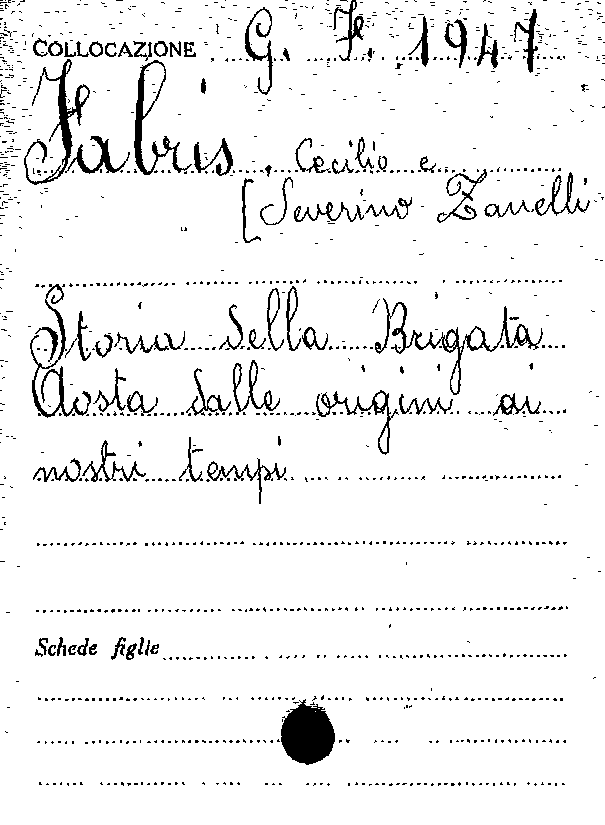 COLLOCAZIONE G. F. 1947
Fabris, Cecilio e
[Severino Zanelli
Storia della Brigata
Aosta dalle origini ai
nostri tempi
Schede figlie